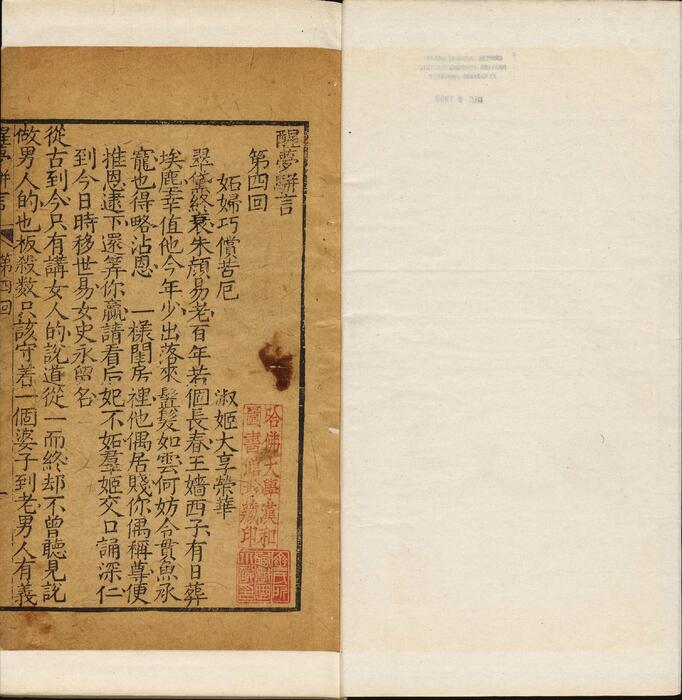 醒夢駢言
第四回
妬婦巧償苦厄　淑姬大享榮華
翠黛終衰朱顔易老百年若個長春王嬙西子有日葬
埃塵幸值他今年少出落來鬒髮如雲何妨令貫魚承
寵也得略沾恩　一樣閨房裡他偶居賤你偶稱尊便
推恩逮下還筭你贏請看后妃不妬羣姬交口誦深仁
到今日時移世易女史永留名
從古到今只有講女人的說道從一而終却不曾聽見說
做男人的也板殺数只該守着一個婆子到老男人有義
醒夢駢言　第四回　一
哈佛大學漢和
圖書館珍藏印